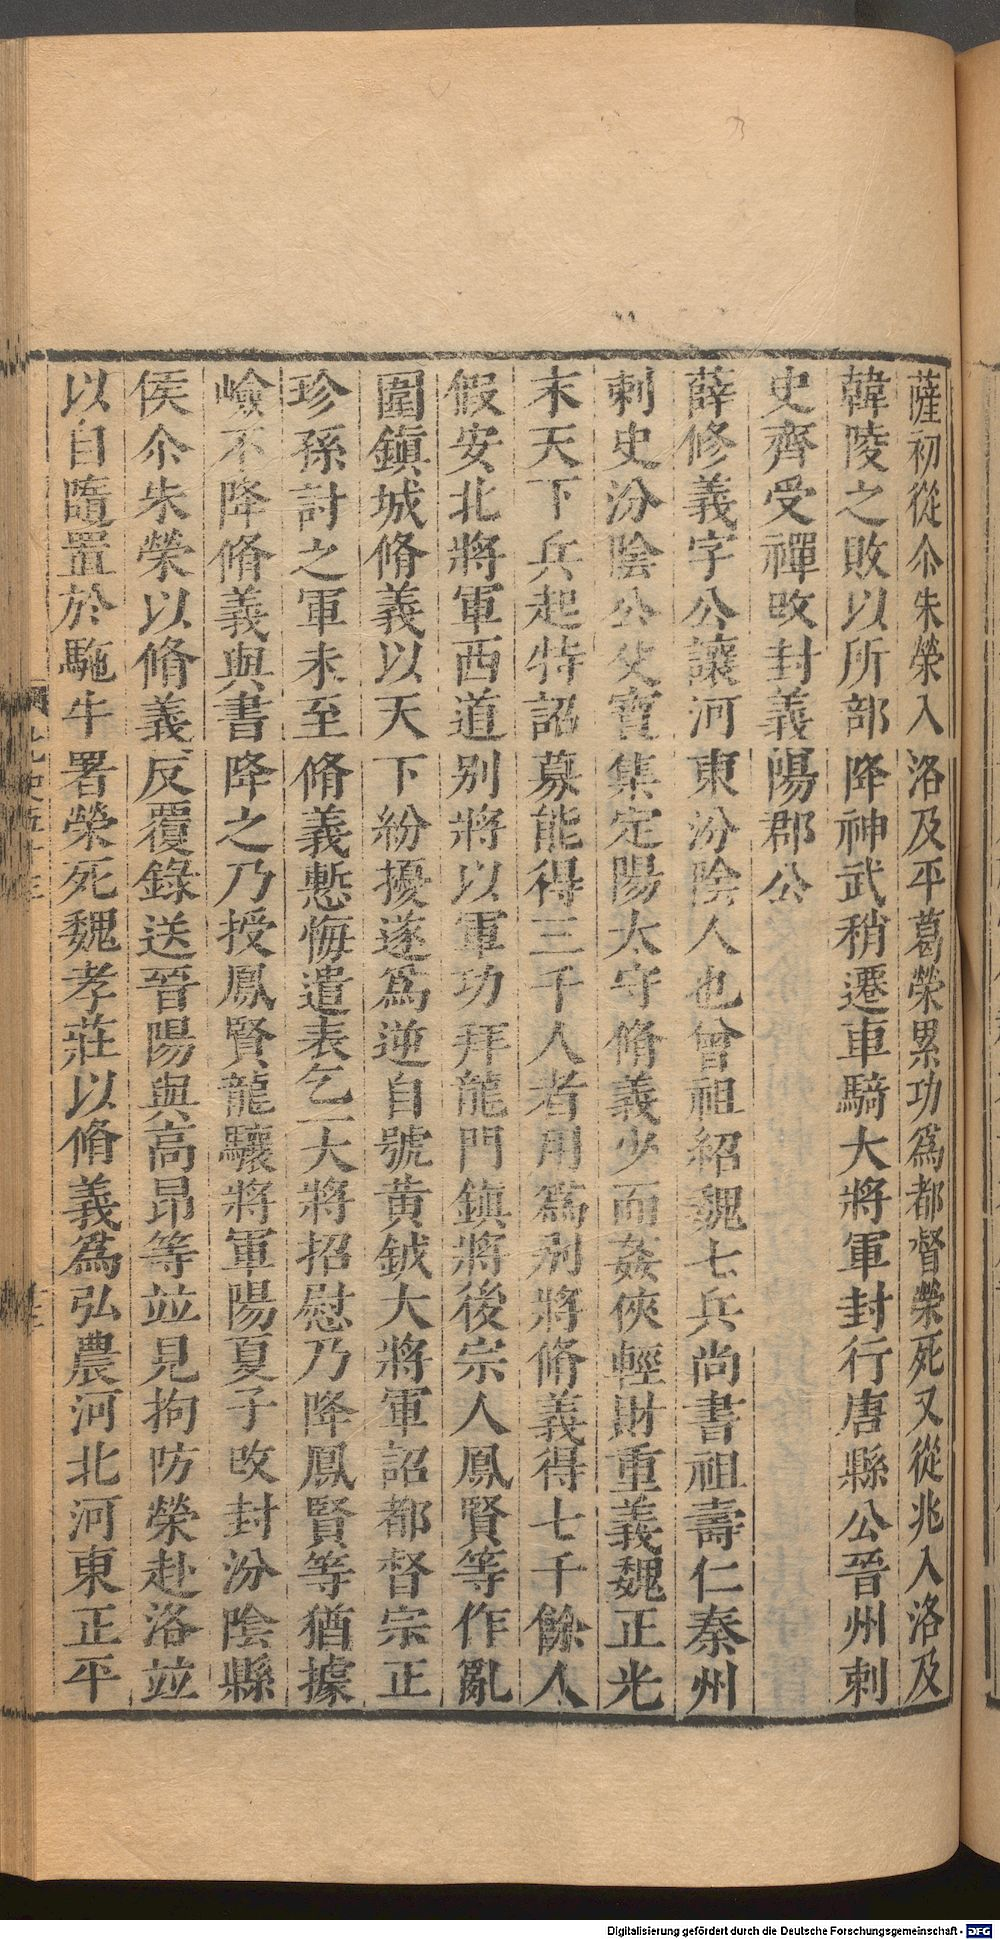 薩初從尒朱榮入洛及平葛榮累功爲都督榮死又從兆入洛及
韓陵之敗以所部降神武稍遷車騎大將軍封行唐縣公晉州刺
史齊受禪攺封義陽郡公
薛修義字公讓河東汾陰人也曾祖紹魏七兵尚書祖壽仁秦州
刺史汾陰公父寶集定陽太守脩義少而姦俠輕財重義魏正光
末天下兵起特詔募能得三千人者用爲别將脩義得七千餘人
假安北將軍西道别將以軍功拜龍門鎮將後宗人鳳賢等作亂
圍鎮城脩義以天下紛擾遂爲逆自號黄鉞大將軍詔都督宗正
珍孫討之軍未至脩義慙悔遣表乞一大將招慰乃降鳳賢等猶據
嶮不降脩義與書降之乃授鳳賢龍驤將軍陽夏子攺封汾陰縣
侯尒朱榮以脩義反覆錄送晉陽與高昂等竝見拘防榮赴洛竝
以自隨置於駞牛署榮死魏孝莊以脩義爲弘農河北河東正平
Digitalisierung gefördert durch die Deutsche Forschungsgemeinschaft - DFG